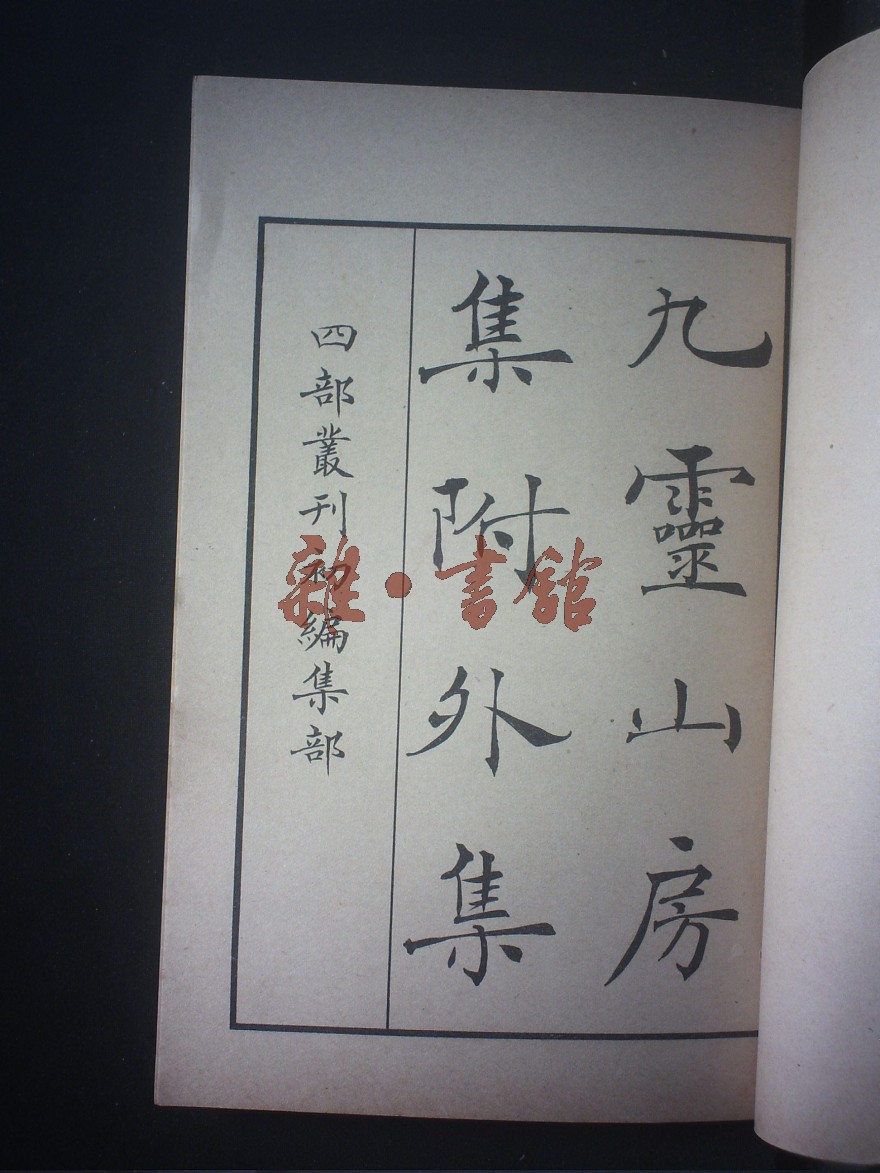 九靈山房
集附外集
四部叢刊初編集部
雜·書館